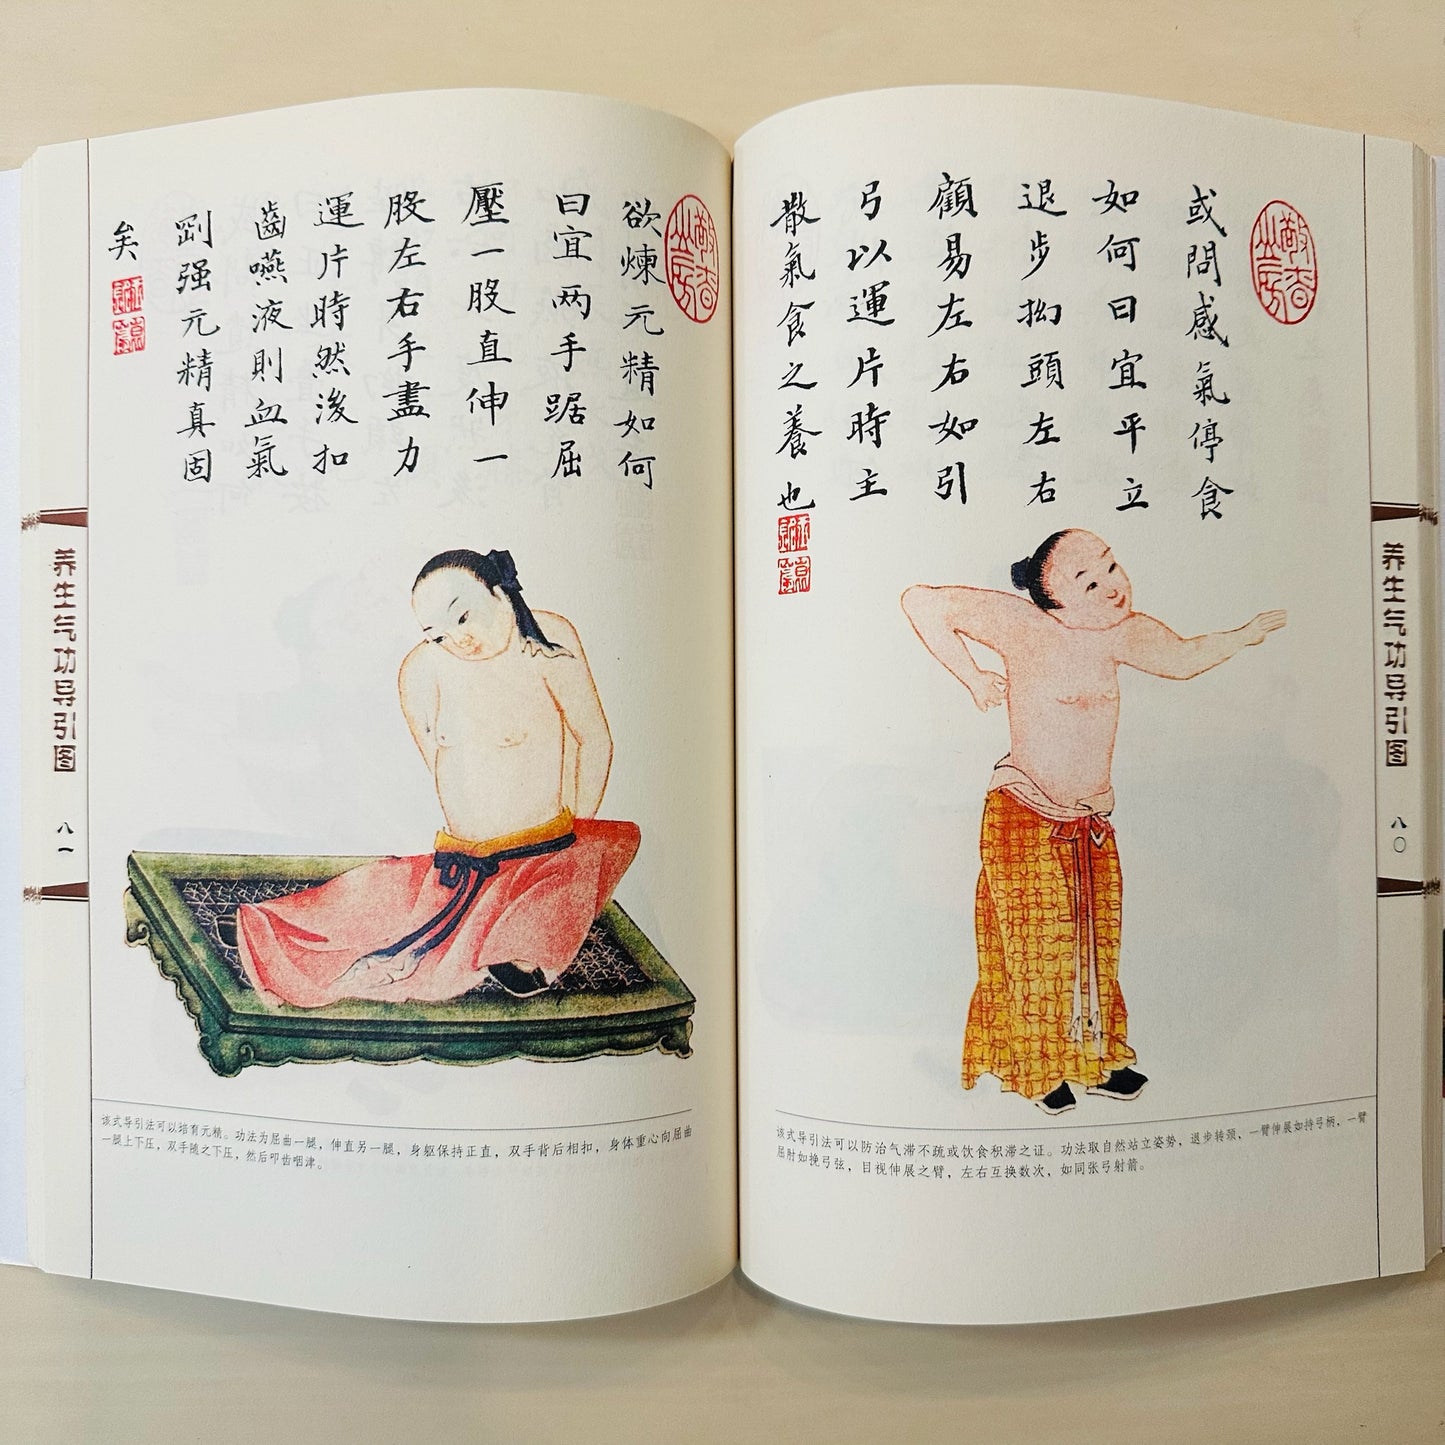 或問感氣停食
如何曰宜平立
退步拗頭左右
顧易左右如引
弓以運片時主
散氣食之養也
该式导引法可以防治气滞不疏或饮食积滞之证。功法取自然站立姿势，退步转颈，一臂伸展如持弓柄，一臂
屈肘如挽弓弦，目视伸展之臂，左右互换数次，如同张弓射箭。
养生气功导引图
八〇
欲煉元精如何
曰宜两手踞屈
壓一股直伸一
股左右手盡力
運片時然後扣
齒嚥液則血氣
剛强元精真固
矣
该式导引法可以培育元精。功法为屈曲一腿，伸直另一腿，身躯保持正直，双手背后相扣，身体重心向屈曲
一腿上下压，双手随之下压，然后叩齿咽津。
养生气功导引图
八一